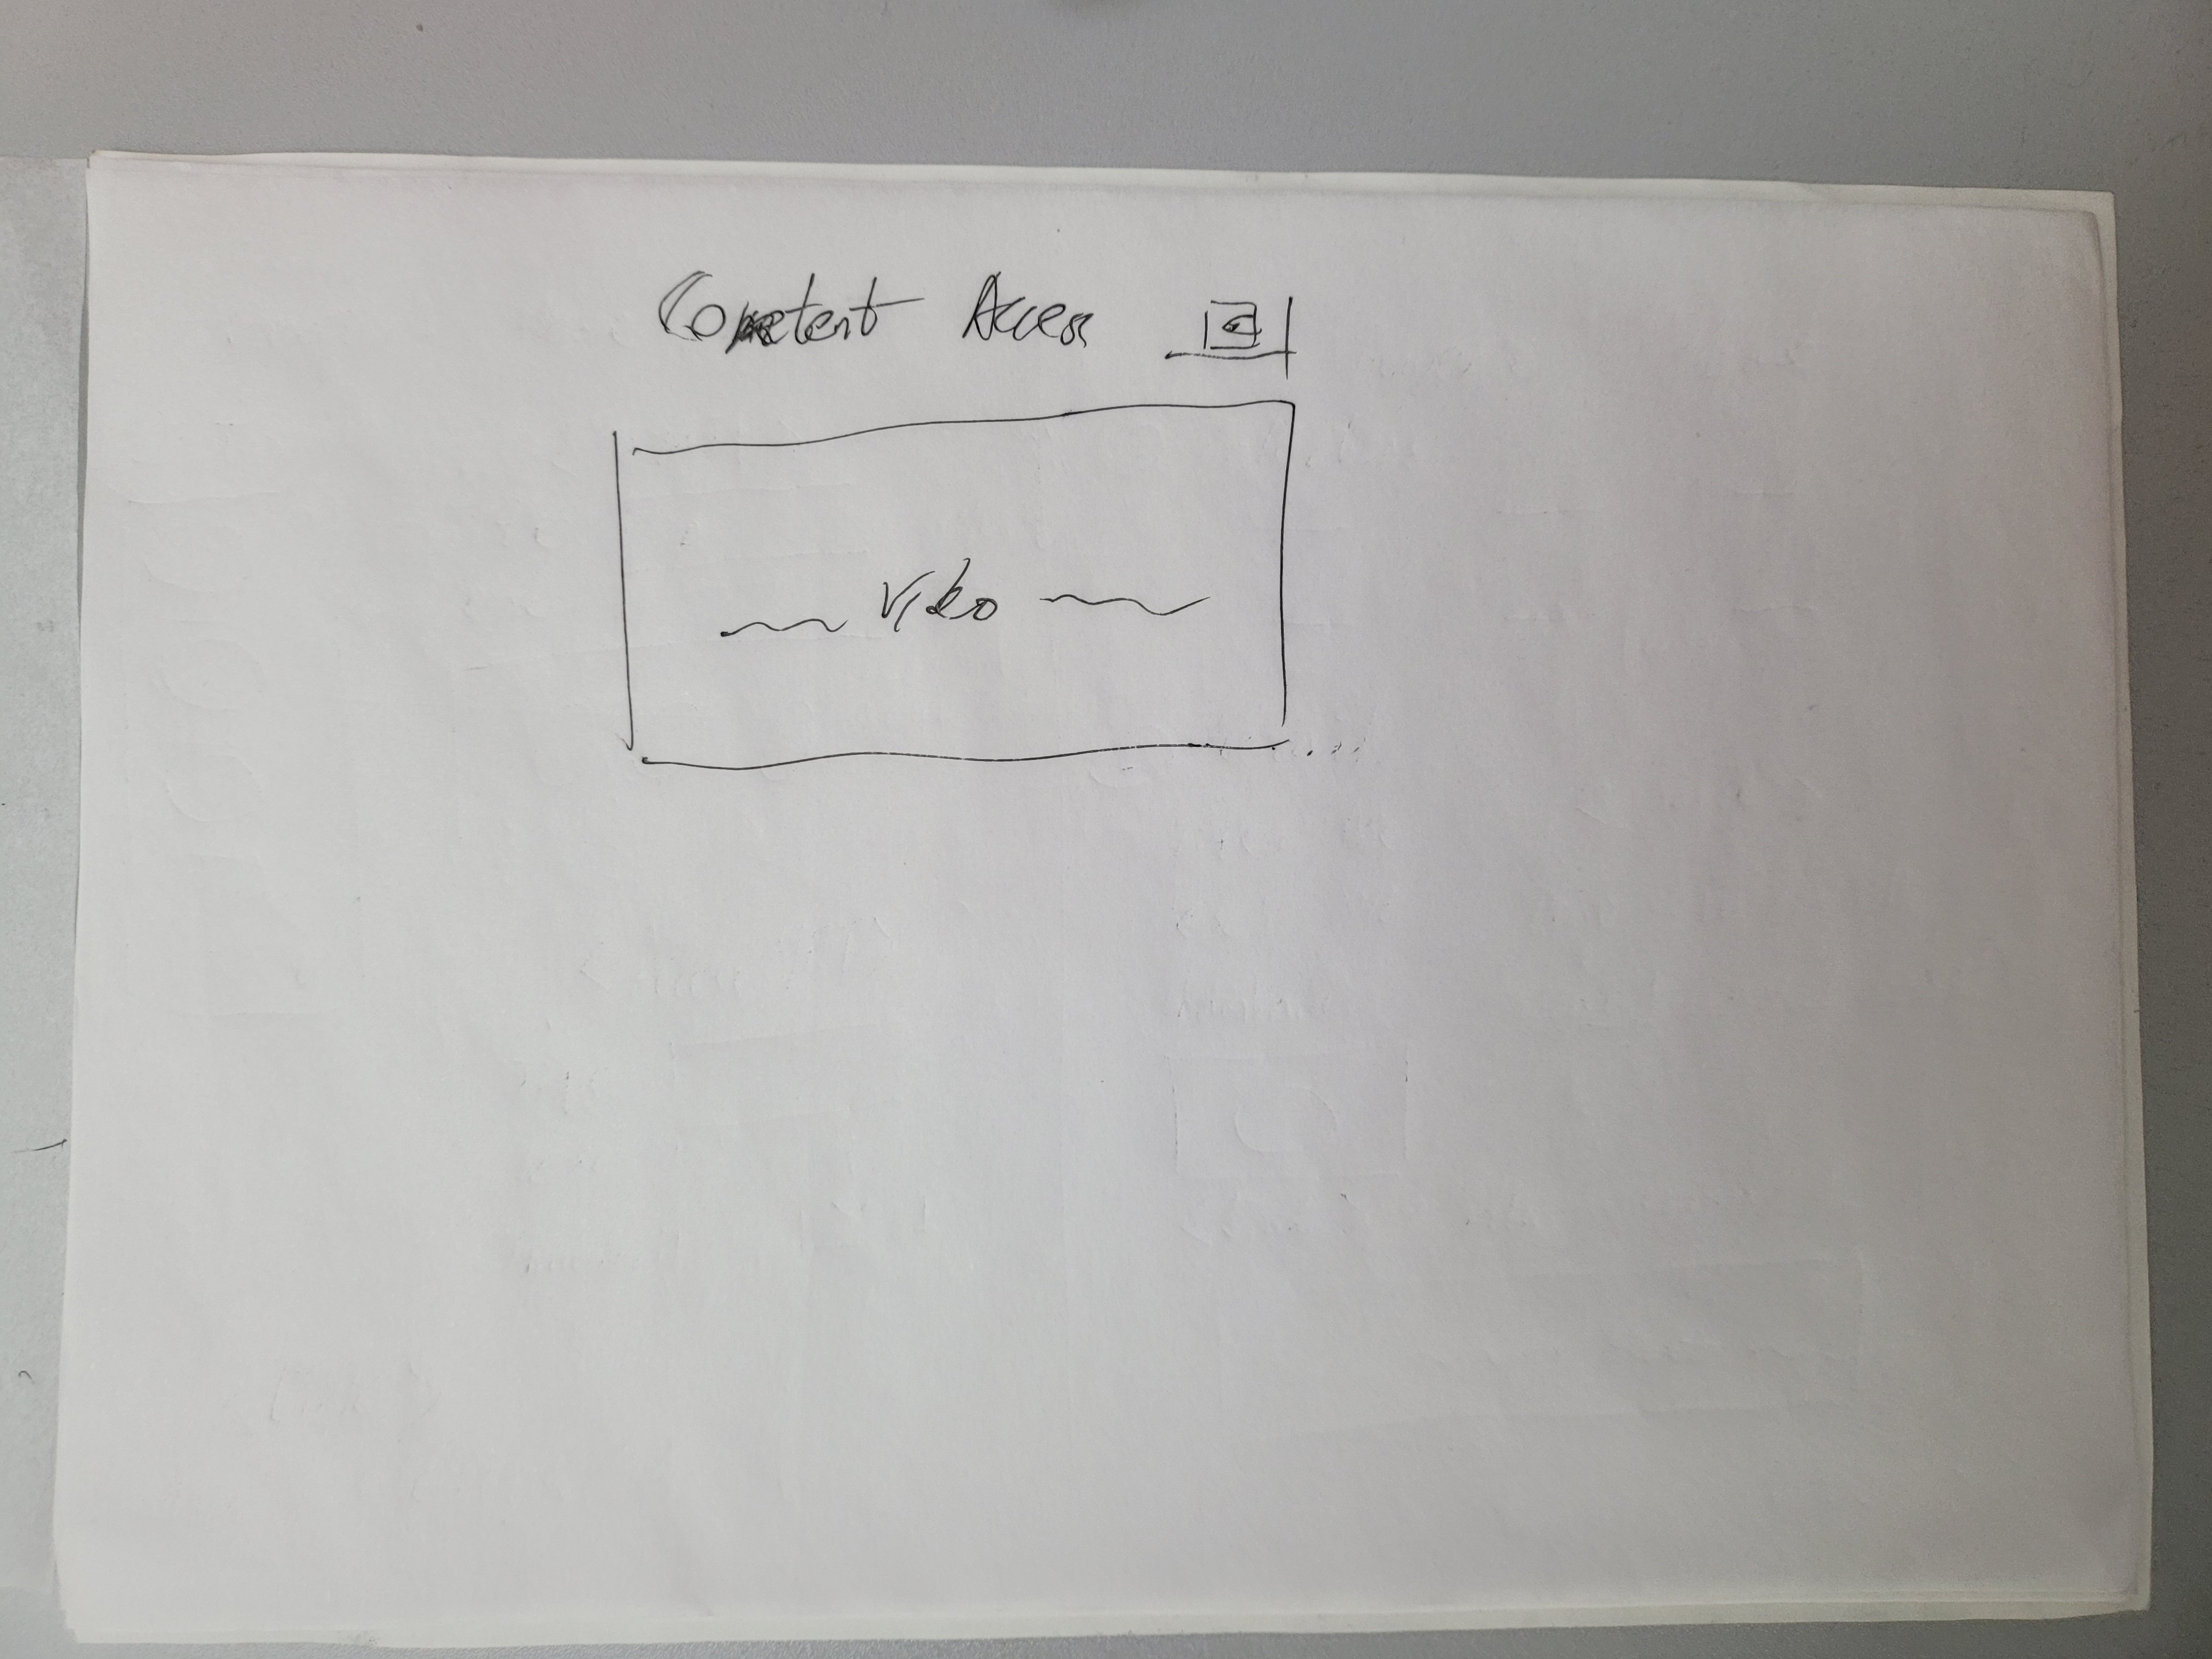 Content Access
Video